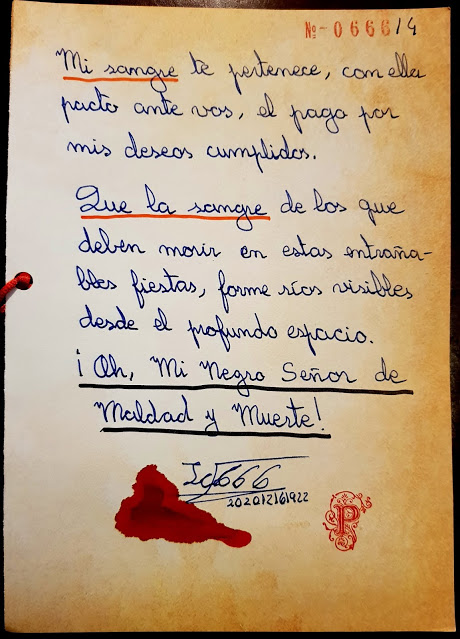 Nº-0666/4
Mi sangre te pertenece, con ella
pacto ante vos, el pago por
mis deseos cumplidos.
Que la sangre de los que
deben morir en estas entraña-
bles fiestas, forme ríos visibles
desde el profundo espacio.
¡Oh, Mi Negro Señor de
Maldad y Muerte!
666
P